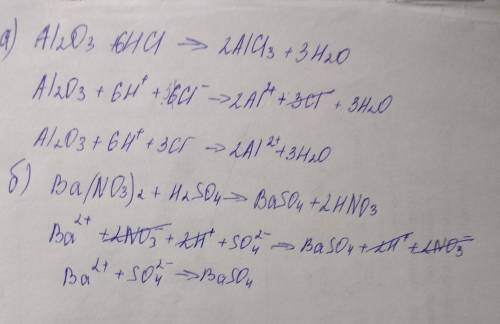 а) Al₂O₃ 6HCl → 2AlCl₃ + 3H₂O
Al₂O₃ + 6H⁺ + 6Cl⁻ → 2Al²⁺ + 3Cl⁻ + 3H₂O
Al₂O₃ + 6H⁺ + 3Cl⁻ → 2Al²⁺ + 3H₂O
б) Ba(NO₃)₂ + H₂SO₄ → BaSO₄ + 2HNO₃
Ba²⁺ + 2NO₃⁻ + 2H⁺ + SO₄²⁻ → BaSO₄ + 2H⁺ + 2NO₃⁻
Ba²⁺ + SO₄²⁻ → BaSO₄